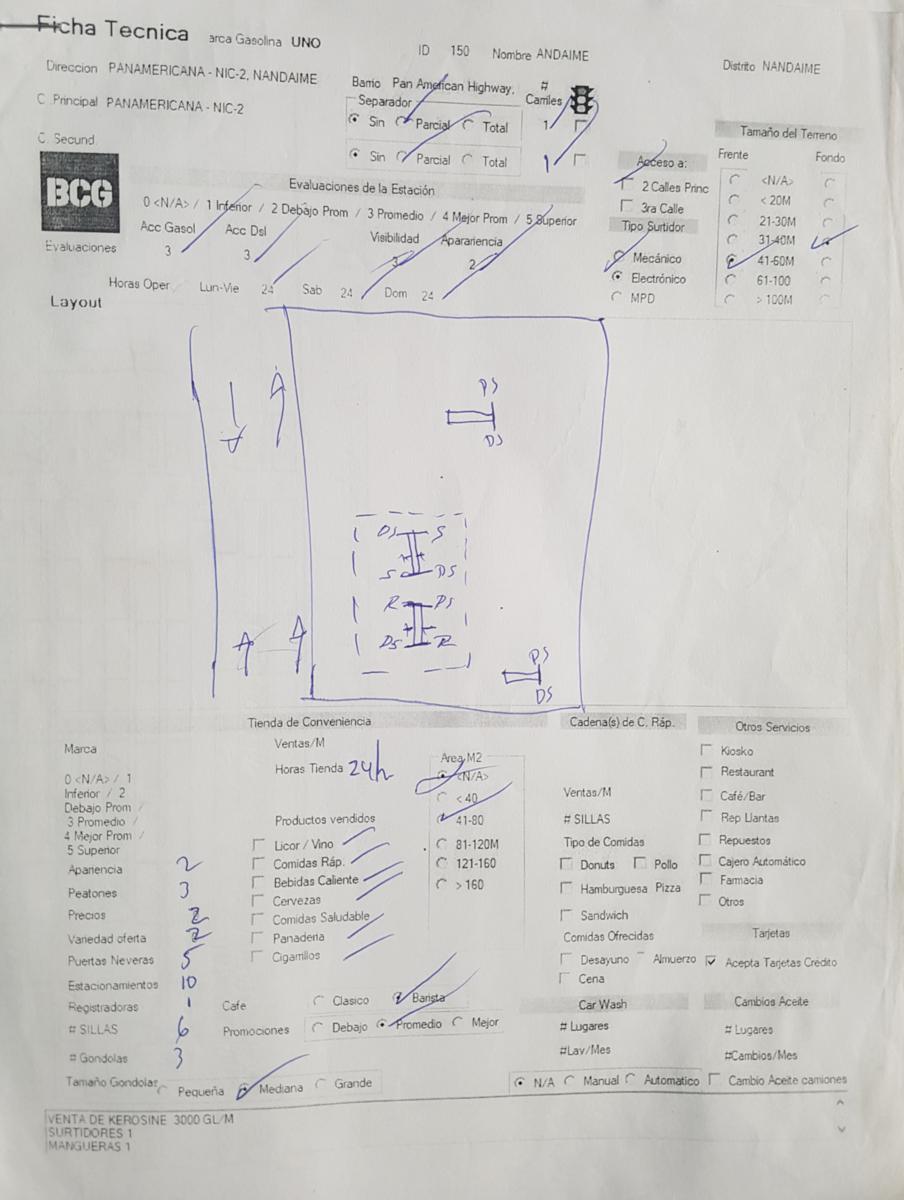 Ficha Tecnica arca Gasolina UNO ID 150 Nombre ANDAIME Distrito NANDAIME
Direccion PANAMERICANA - NIC-2, NANDAIME Barrio Pan American Highway, # Carriles
C. Principal PANAMERICANA - NIC-2
Separador
Sin Parcial Total 1
C. Secund.
Sin Parcial Total 1
Acceso a:
2 Calles Princ
3ra Calle
Tamaño del Terreno
Frente Fondo
<N/A>
< 20M
21-30M
31-40M
41-60M
61-100
> 100M
Tipo Surtidor
Mecánico
Electrónico
MPD
BCG
Evaluaciones
Evaluaciones de la Estación
0 <N/A> / 1 Inferior / 2 Debajo Prom / 3 Promedio / 4 Mejor Prom / 5 Superior
Acc Gasol Acc Dsl Visibilidad Aparariencia
3 3 3 2
Horas Oper Lun-Vie 24 Sab 24 Dom 24
Layout
PS
DS
DS S
S DS
R PS
DS R
PS
DS
Marca
0 <N/A> / 1
Inferior / 2
Debajo Prom /
3 Promedio /
4 Mejor Prom /
5 Superior
Apariencia 2
Peatones 3
Precios 2
Variedad oferta 2
Puertas Neveras 5
Estacionamientos 10
Registradoras 1
# SILLAS 6
# Gondolas 3
Tamaño Gondolas Pequeña Mediana Grande
Tienda de Conveniencia
Ventas/M
Horas Tienda 24h
Productos vendidos
Licor / Vino
Comidas Ráp.
Bebidas Caliente
Cervezas
Comidas Saludable
Panaderia
Cigarrillos
Area M2
<N/A>
< 40
41-80
81-120M
121-160
> 160
Cafe Clasico Barista
Promociones Debajo Promedio Mejor
Cadena(s) de C. Ráp.
Ventas/M
# SILLAS
Tipo de Comidas
Donuts Pollo
Hamburguesa Pizza
Sandwich
Comidas Ofrecidas
Desayuno Almuerzo
Cena
Car Wash
# Lugares
#Lav/Mes
N/A Manual Automatico
Otros Servicios
Kiosko
Restaurant
Café/Bar
Rep Llantas
Repuestos
Cajero Automático
Farmacia
Otros
Tarjetas
Acepta Tarjetas Crédito
Cambios Aceite
# Lugares
#Cambios/Mes
Cambio Aceite camiones
VENTA DE KEROSINE 3000 GL/M
SURTIDORES 1
MANGUERAS 1